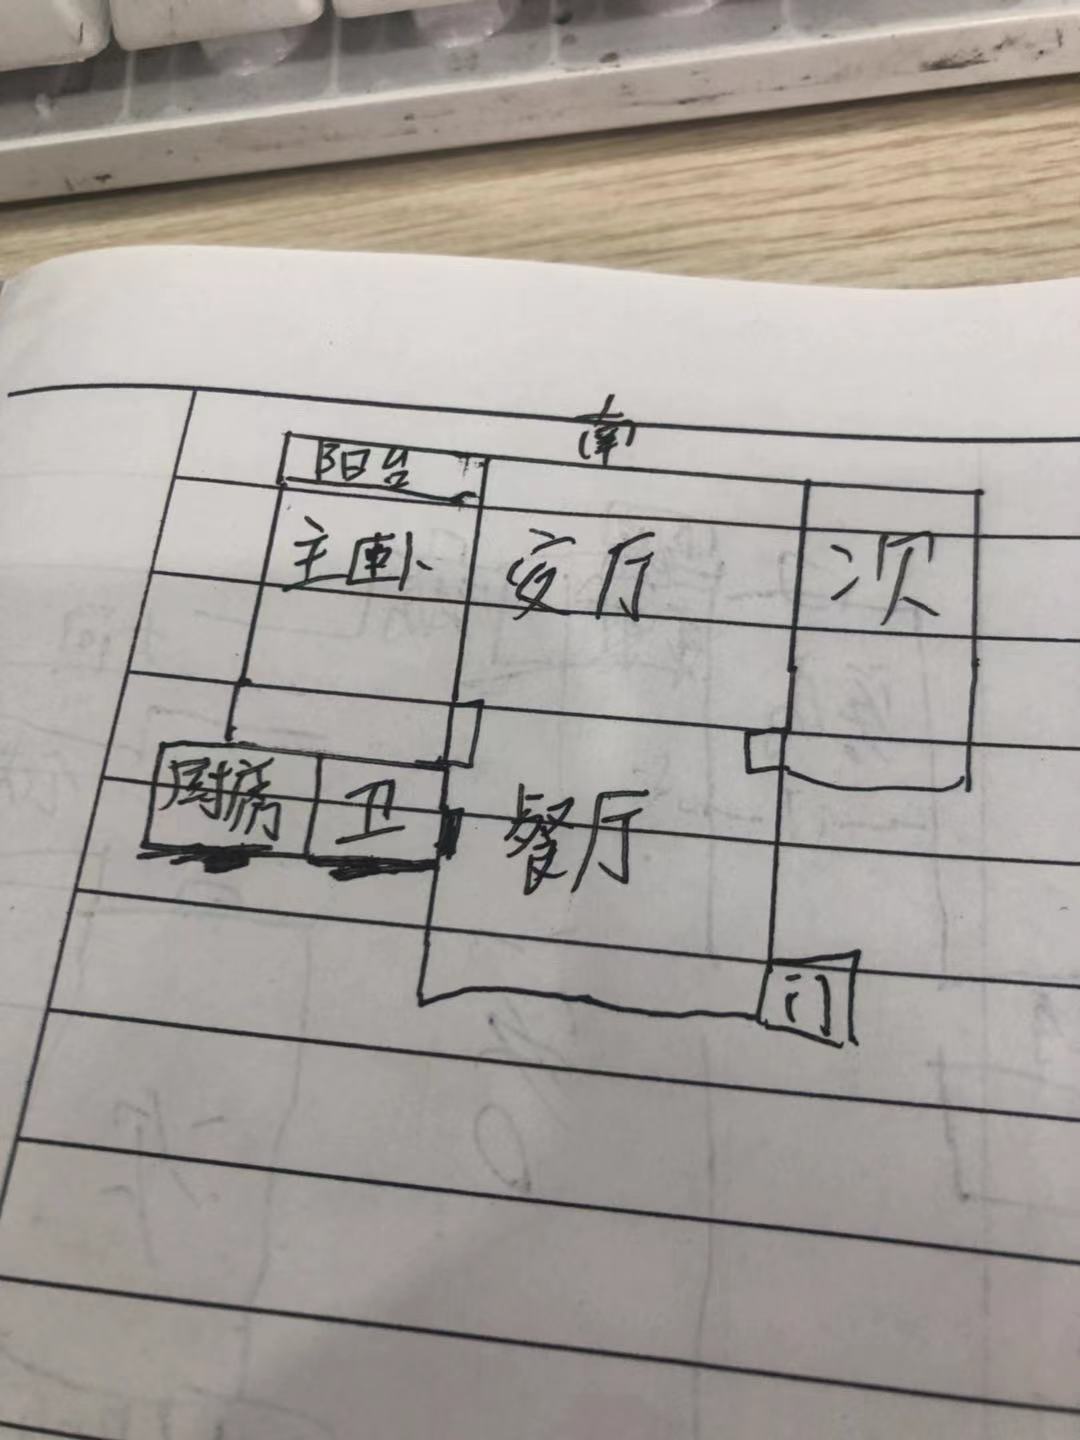 南
阳台
主卧 客厅 次
厨房 卫 餐厅
门